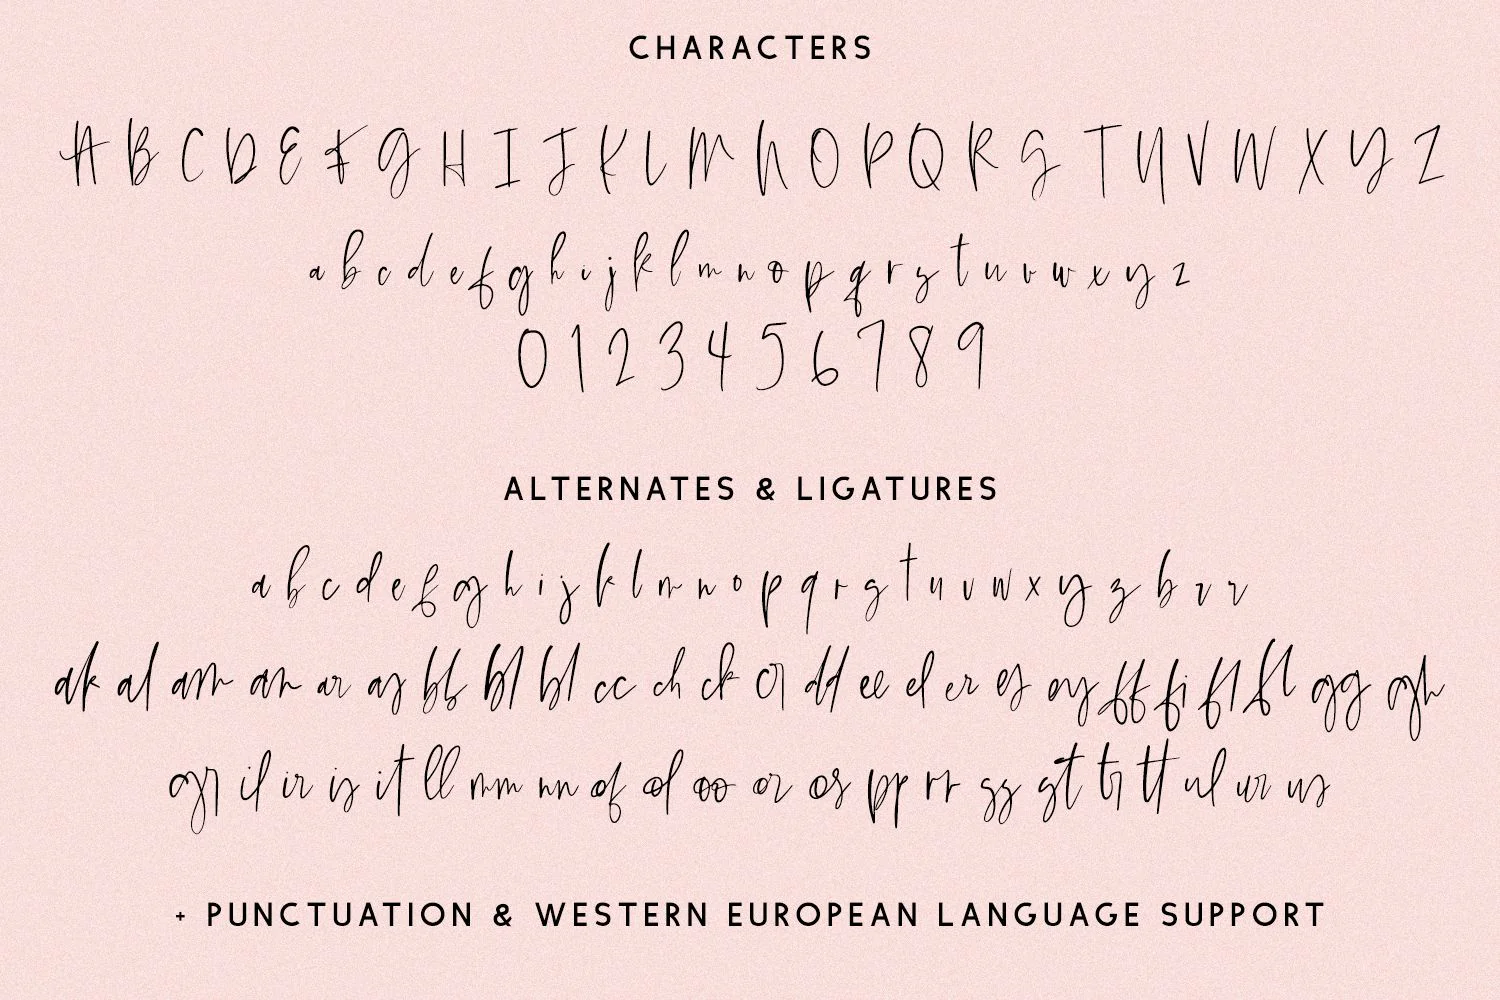 CHARACTERS
A B C D E F G H I J K L M N O P Q R S T U V W X Y Z
a b c d e f g h i j k l m n o p q r s t u v w x y z
0 1 2 3 4 5 6 7 8 9
ALTERNATES & LIGATURES
a b c d e f g h i j k l m n o p q r s t u v w x y z b r r
ak al am an ar as bb bl bl cc ch ck cr dd ee el er es ey ff fi fl fl gg gh
gr il ir is it ll mm nn of ol oo or os pp rr ss st tr tt ul ur us
+ PUNCTUATION & WESTERN EUROPEAN LANGUAGE SUPPORT